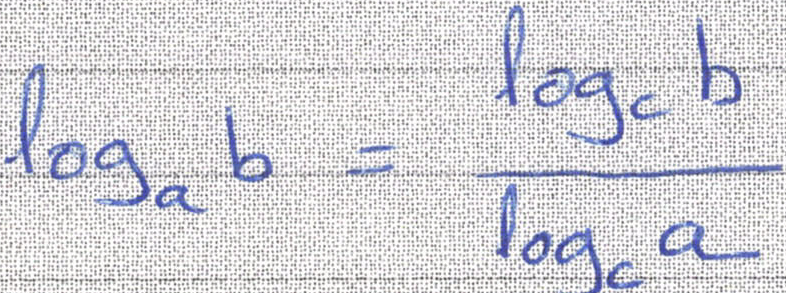 log_a b = \frac{log_c b}{log_c a}